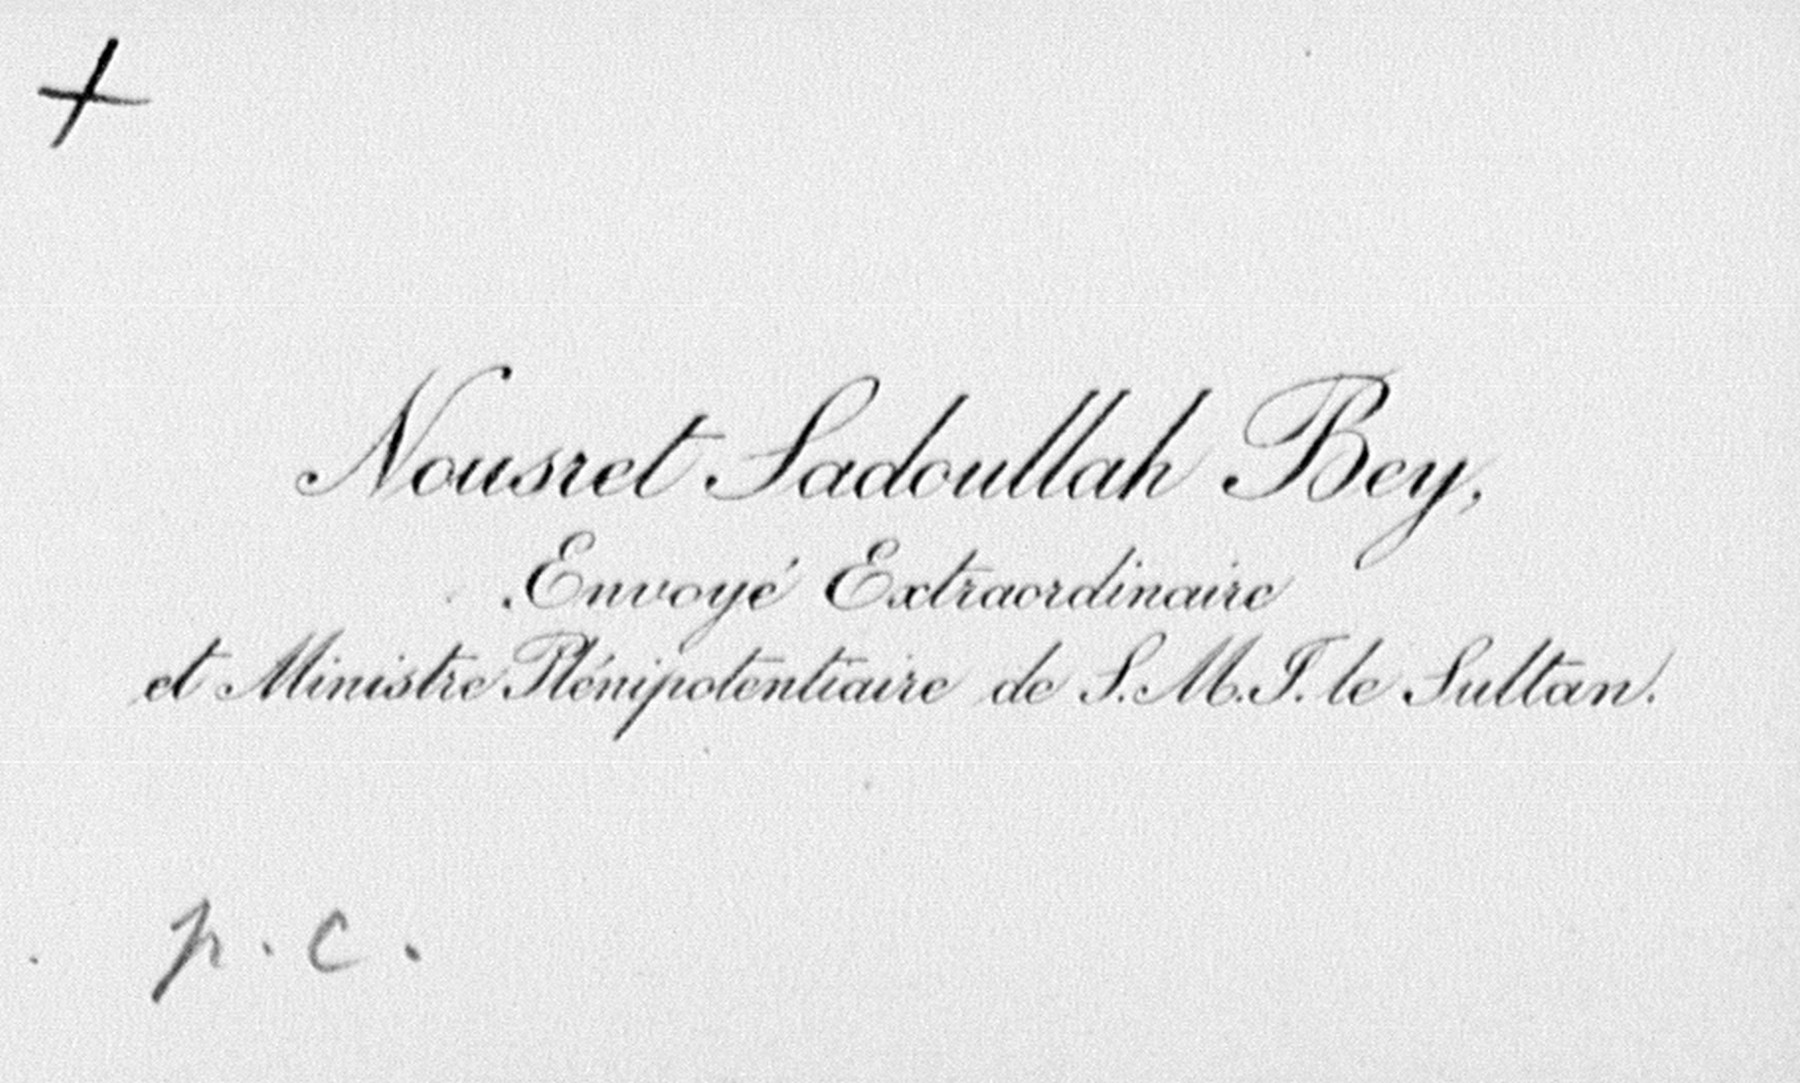 Nousret Sadoullah Bey,
Envoyé Extraordinaire
et Ministre Plénipotentiaire de S.M.I. le Sultan.
p.c.